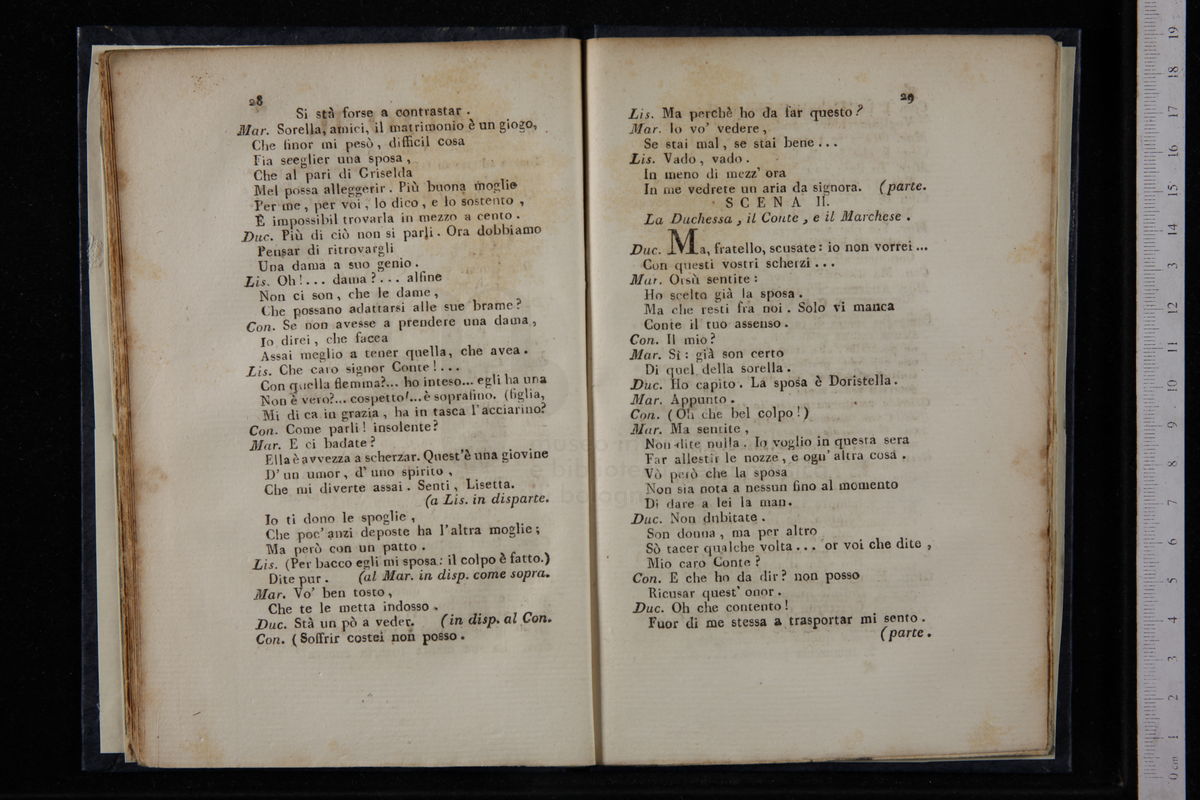 28
Si stà forse a contrastar .
Mar. Sorella, amici, il matrimonio è un giogo,
Che finor mi pesò, difficil cosa
Fia sceglier una sposa ,
Che al pari di Griselda
Mel possa alleggerir . Più buona moglie
Per me , per voi , lo dico , e lo sostento ,
È impossibil trovarla in mezzo a cento .
Duc. Più di ciò non si parli . Ora dobbiamo
Pensar di ritrovargli
Una dama a suo genio .
Lis. Oh!... dama ?... alfine
Non ci son , che le dame ,
Che possano adattarsi alle sue brame?
Con. Se non avesse a prendere una dama ,
Io direi , che facea
Assai meglio a tener quella, che avea .
Lis. Che caro signor Conte!...
Con quella flemma?... ho inteso... egli ha una
Non è vero?... cospetto!... è soprafino. (figlia,
Mi dica in grazia , ha in tasca l'acciarino?
Con. Come parli! insolente?
Mar. E ci badate?
Ella è avvezza a scherzar. Quest'è una giovine
D'un umor, d'uno spirito ,
Che mi diverte assai . Senti , Lisetta.
(a Lis. in disparte.
Io ti dono le spoglie ,
Che poc'anzi deposte ha l'altra moglie ;
Ma però con un patto .
Lis. (Per bacco egli mi sposa: il colpo è fatto.)
Dite pur . (al Mar. in disp. come sopra.
Mar. Vo' ben tosto,
Che te le metta indosso .
Duc. Stà un pò a veder. (in disp. al Con.
Con. (Soffrir costei non posso .
29
Lis. Ma perchè ho da far questo?
Mar. Io vo' vedere ,
Se stai mal , se stai bene ...
Lis. Vado , vado .
In meno di mezz' ora
In me vedrete un aria da signora. (parte.
SCENA II.
La Duchessa , il Conte , e il Marchese .
Duc. Ma, fratello, scusate: io non vorrei ...
Con questi vostri scherzi ...
Mar. Orsù sentite :
Ho scelto già la sposa .
Ma che resti fra noi . Solo vi manca
Conte il tuo assenso .
Con. Il mio?
Mar. Sì : già son certo
Di quel della sorella .
Duc. Ho capito . La sposa è Doristella .
Mar. Appunto .
Con. (Oh che bel colpo!)
Mar. Ma sentite ,
Non dite nulla . Io voglio in questa sera
Far allestir le nozze , e ogn' altra cosa .
Vò però che la sposa
Non sia nota a nessun fino al momento
Di dare a lei la man .
Duc. Non dubitate .
Son donna , ma per altro
Sò tacer qualche volta ... or voi che dite ,
Mio caro Conte ?
Con. E che ho da dir ? non posso
Ricusar quest' onor .
Duc. Oh che contento!
Fuor di me stessa a trasportar mi sento .
(parte .